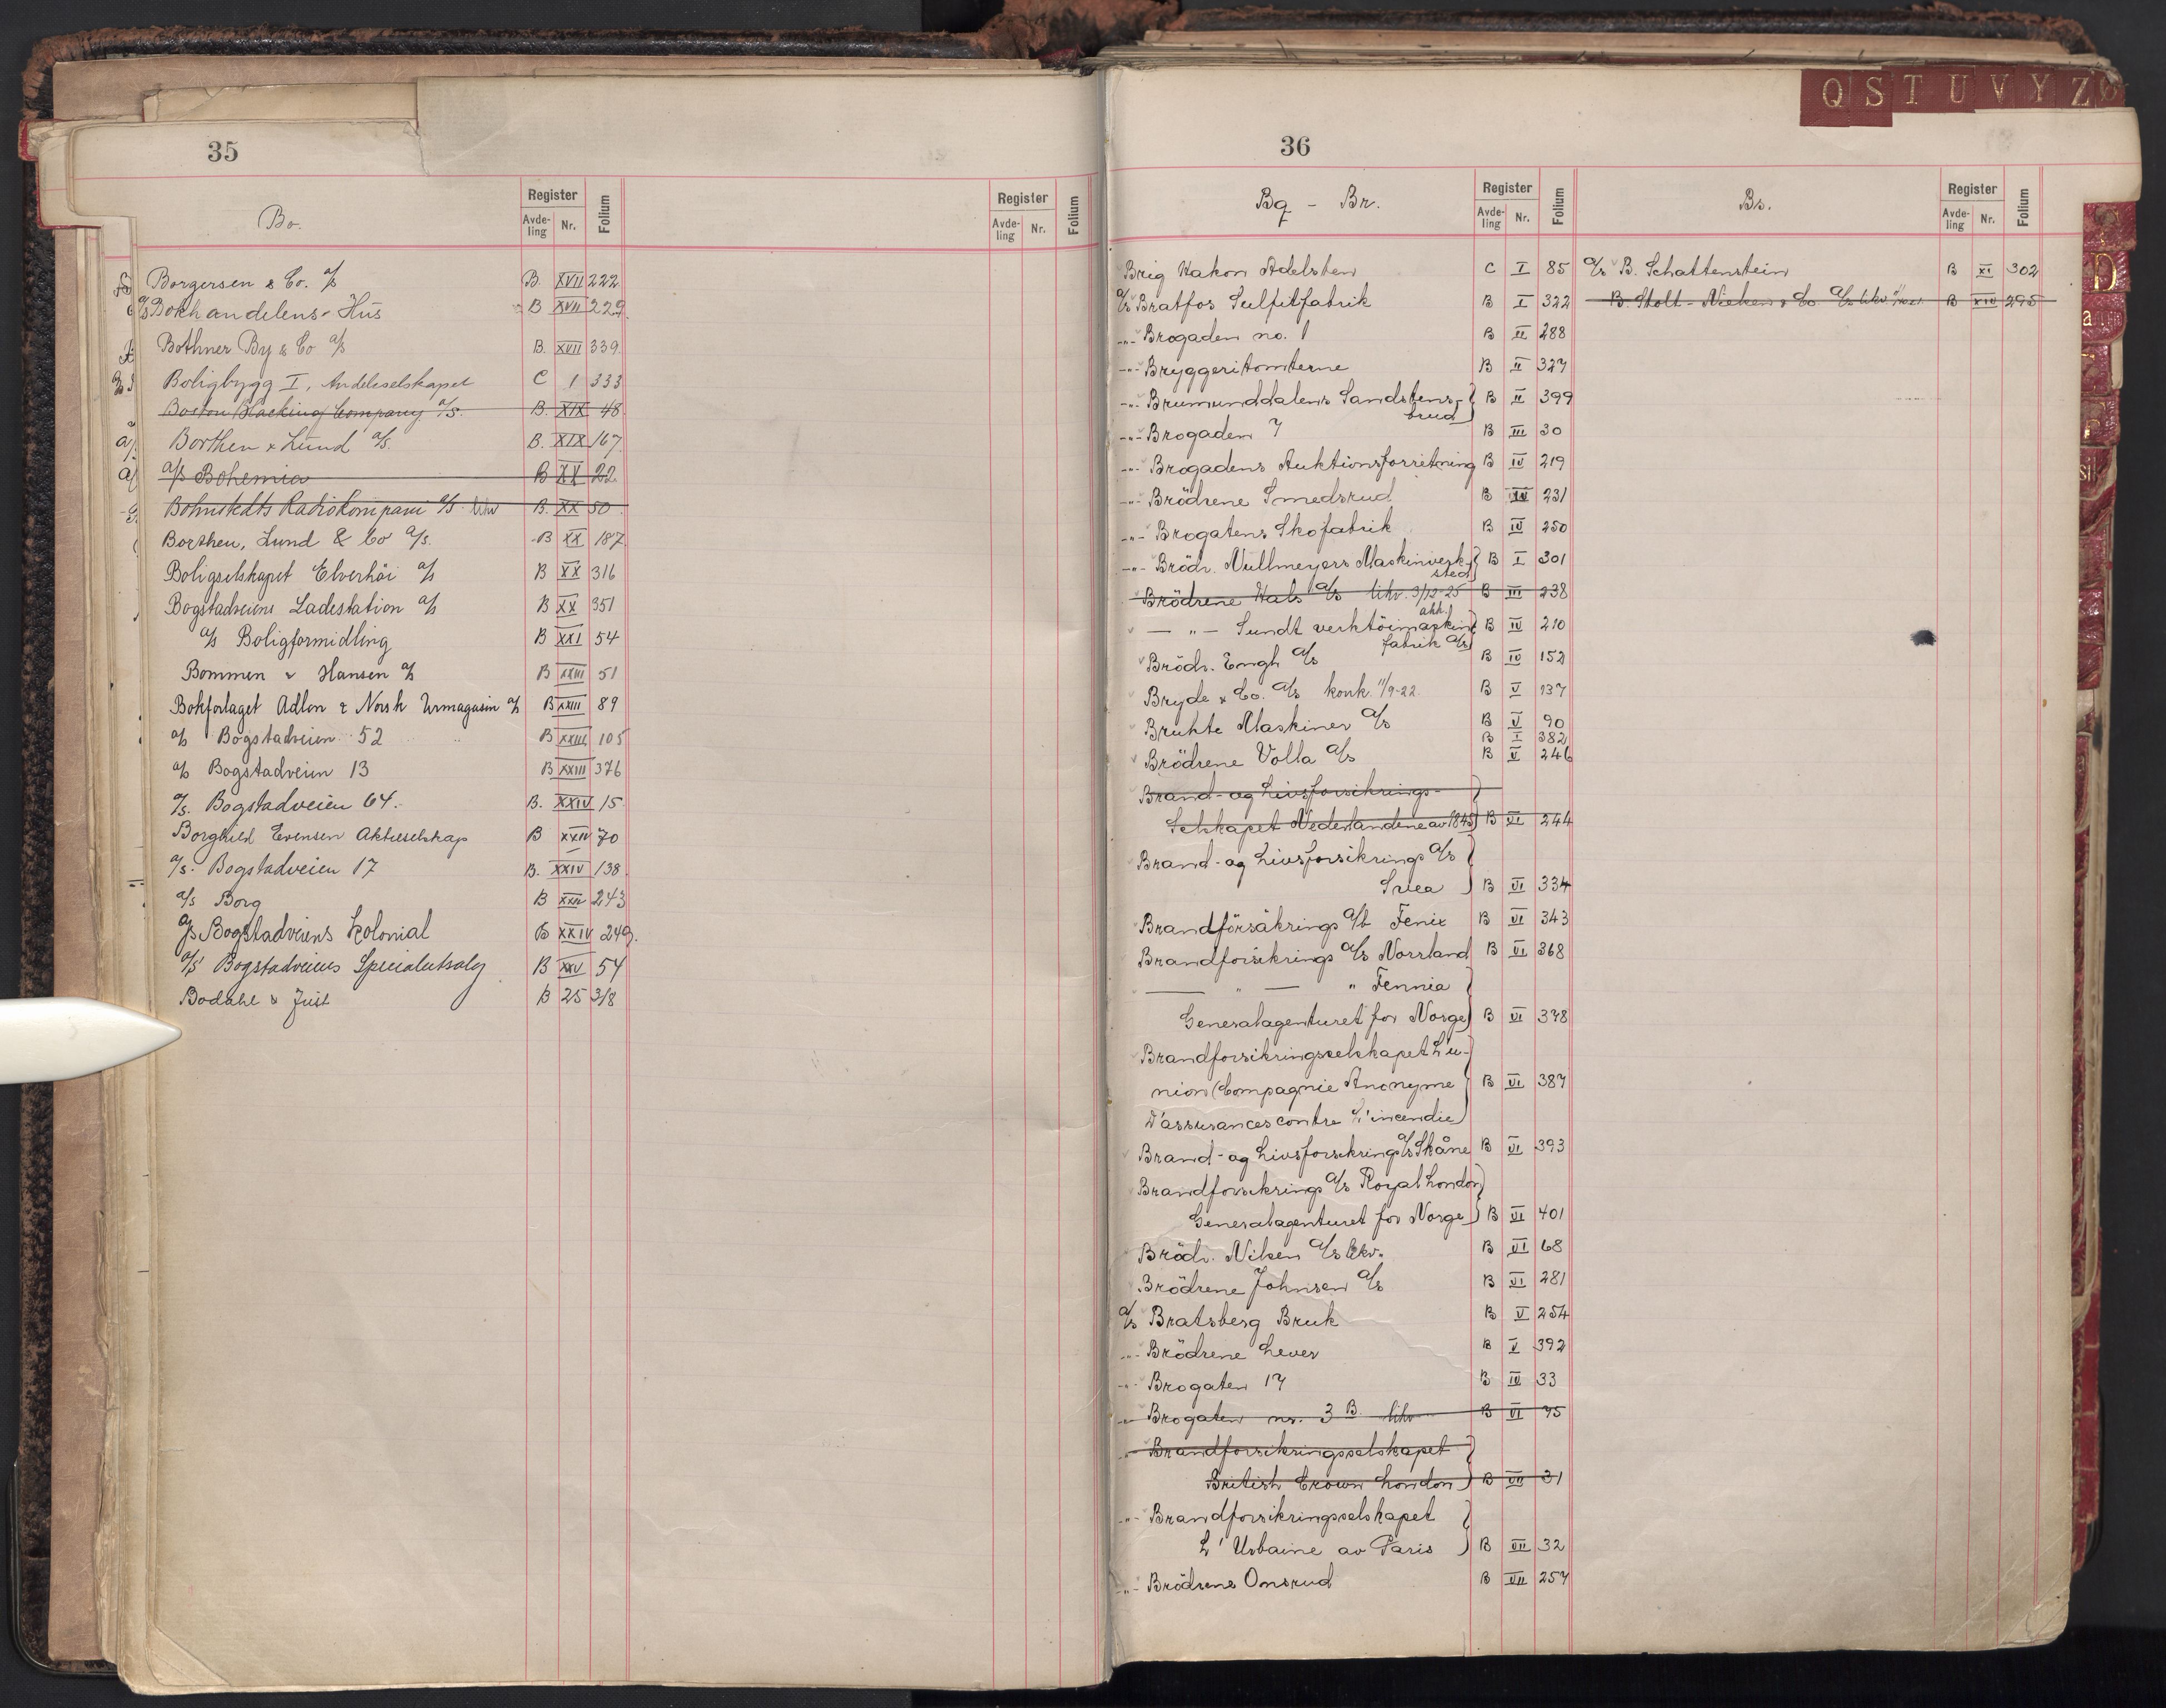 35
Bo.
Register
Avde-
ling
Nr.
Folium
Register
Avde-
ling
Nr.
Folium
Borgersen & Co. A/S B. XVII 222
A/S Bokhandelens Hus B XVII 229.
Bothner By & Co A/S B. XVII 339.
Boligbygg I, Andelsselskapet C 1 333
Boston Blacking Company A/S. B. XIX 48
Borthen & Lund A/S. B. XIX 167.
A/S Bohemia B XX 22.
Bohnstedts Radiokompani A/S likv B. XX 50.
Borthen, Lund & Co A/S. B XX 187
Boligselskapet Elverhöi A/S B XX 316
Bogstadveiens Ladestation A/S B XX 351
A/S Boligformidling B XXI 54
Bommen & Hansen A/S B XXIII 51
Bokforlaget Adlon & Norsk Urmagasin A/S B XXIII 89
A/S Bogstadveien 52 B XXIII 105
A/S Bogstadveien 13 B XXIII 376
A/S. Bogstadveien 64. B. XXIV 15
Borghild Evensen Aktieselskap B XXIV 70
A/S. Bogstadveien 17 B. XXIV 138
A/S Borg B XXIV 243
A/S Bogstadveiens Kolonial B XXIV 249.
A/S Bogstadveiens Specialutsalg B XXV 54
Bodahl & Just B 25 318
36
Bq - Br.
Register
Avde-
ling
Nr.
Folium
Bs.
Register
Avde-
ling
Nr.
Folium
Q S T U V Y Z Ø
Brig Hakon Adelsten C I 85
A/S Bratfos Sulfitfabrik B I 322
-"- Brogaden no. 1 B II 288
-"- Bryggeritomterne B II 327
-"- Brumunddalens Sandstens-
brud B II 399
-"- Brogaden 7 B III 30
-"- Brogadens Auktionsforretning B IV 219
-"- Brödrene Smedsrud B IV 231
-"- Brogatens Skofabrik B IV 250
-"- Brödr. Nullmeyers Maskinverk-
sted B I 301
Brödrene Hals A/S likv. 3/12-25 B III 238
— " — Sundt verktöimaskin
fabrik A/S B IV 210
Brödr. Engh A/S B IV 152
Bryde & Co. A/S konk. 11/9-22. B V 137
Brukte Maskiner A/S B V 90
B I 382
Brödrene Volla A/S B V 246
Brand- og Livsforsikrings-
Selskapet Nederlandene av 1845 B VI 244
Brand- og Livsforsikrings A/S
Svea B VI 334
Brandförsäkrings A/B Fenix B VI 343
Brandforsikrings A/S Norrland B VI 368
— " — " Fennia
Generalagenturet for Norge B VI 378
Brandforsikringsselskapet L'u-
nion (Compagnie Anonyme B VI 387
D'assurances contre L'incendie)
Brand- og Livsforsikrings A/S Skåne B VI 393
Brandforsikrings A/S Royal London
Generalagenturet for Norge B VI 401
Brödr. Nilsen A/S likv. B VI 68
Brödrene Johnsen A/S B VI 281
A/S Bratsberg Bruk B V 254
-"- Brödrene Lever B V 392
-"- Brogaten 17 B IV 33
-"- Brogaten nr. 3 B. likv B VI 75
-"- Brandforsikringsselskapet
British Crown London B VII 31
-"- Brandforsikringsselskapet
L'Urbaine av Paris B VII 32
-"- Brödrene Onsrud B VII 257
A/S B. Schattenstein B XI 302
B. Stolt-Nielsen & Co A/S likv. B XIV 295